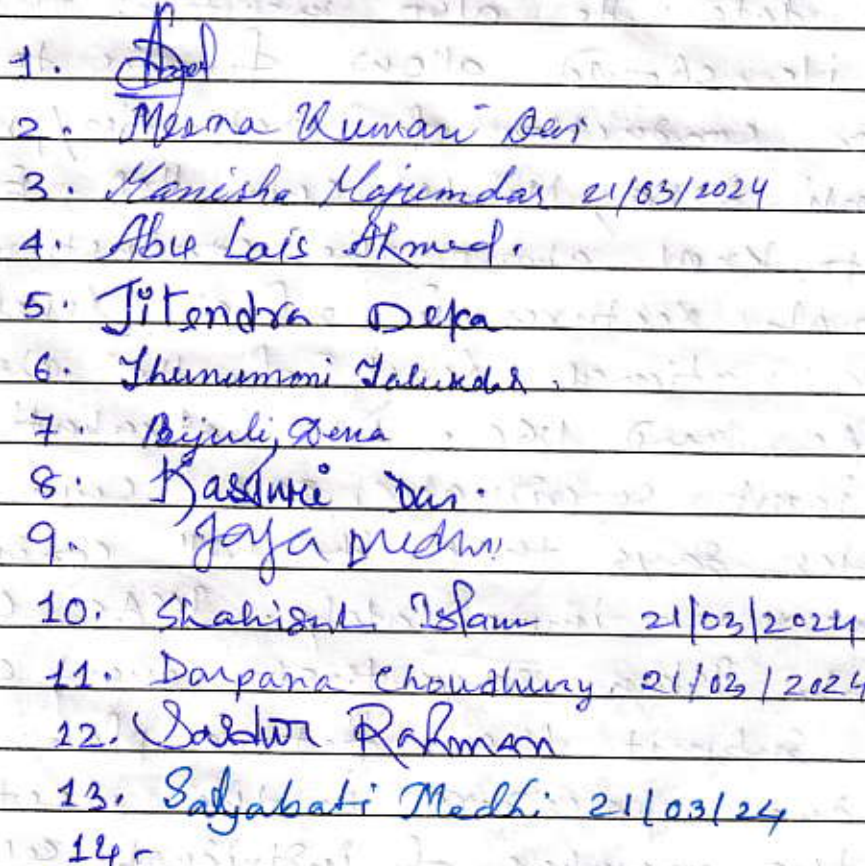 1.
2. Meena Kumari Das
3. Manisha Majumdar 21/03/2024
4. Abu Lais Ahmed.
5. Jitendra Deka
6. Jhunumoni Talukdar.
7. Bijuli Deka
8. Kasturi Das.
9. Jaya Medhi
10. Shahidul Islam 21/03/2024
11. Darpana Choudhury 21/03/2024
12. Rahman
13. Satyabati Medhi 21/03/24
14-